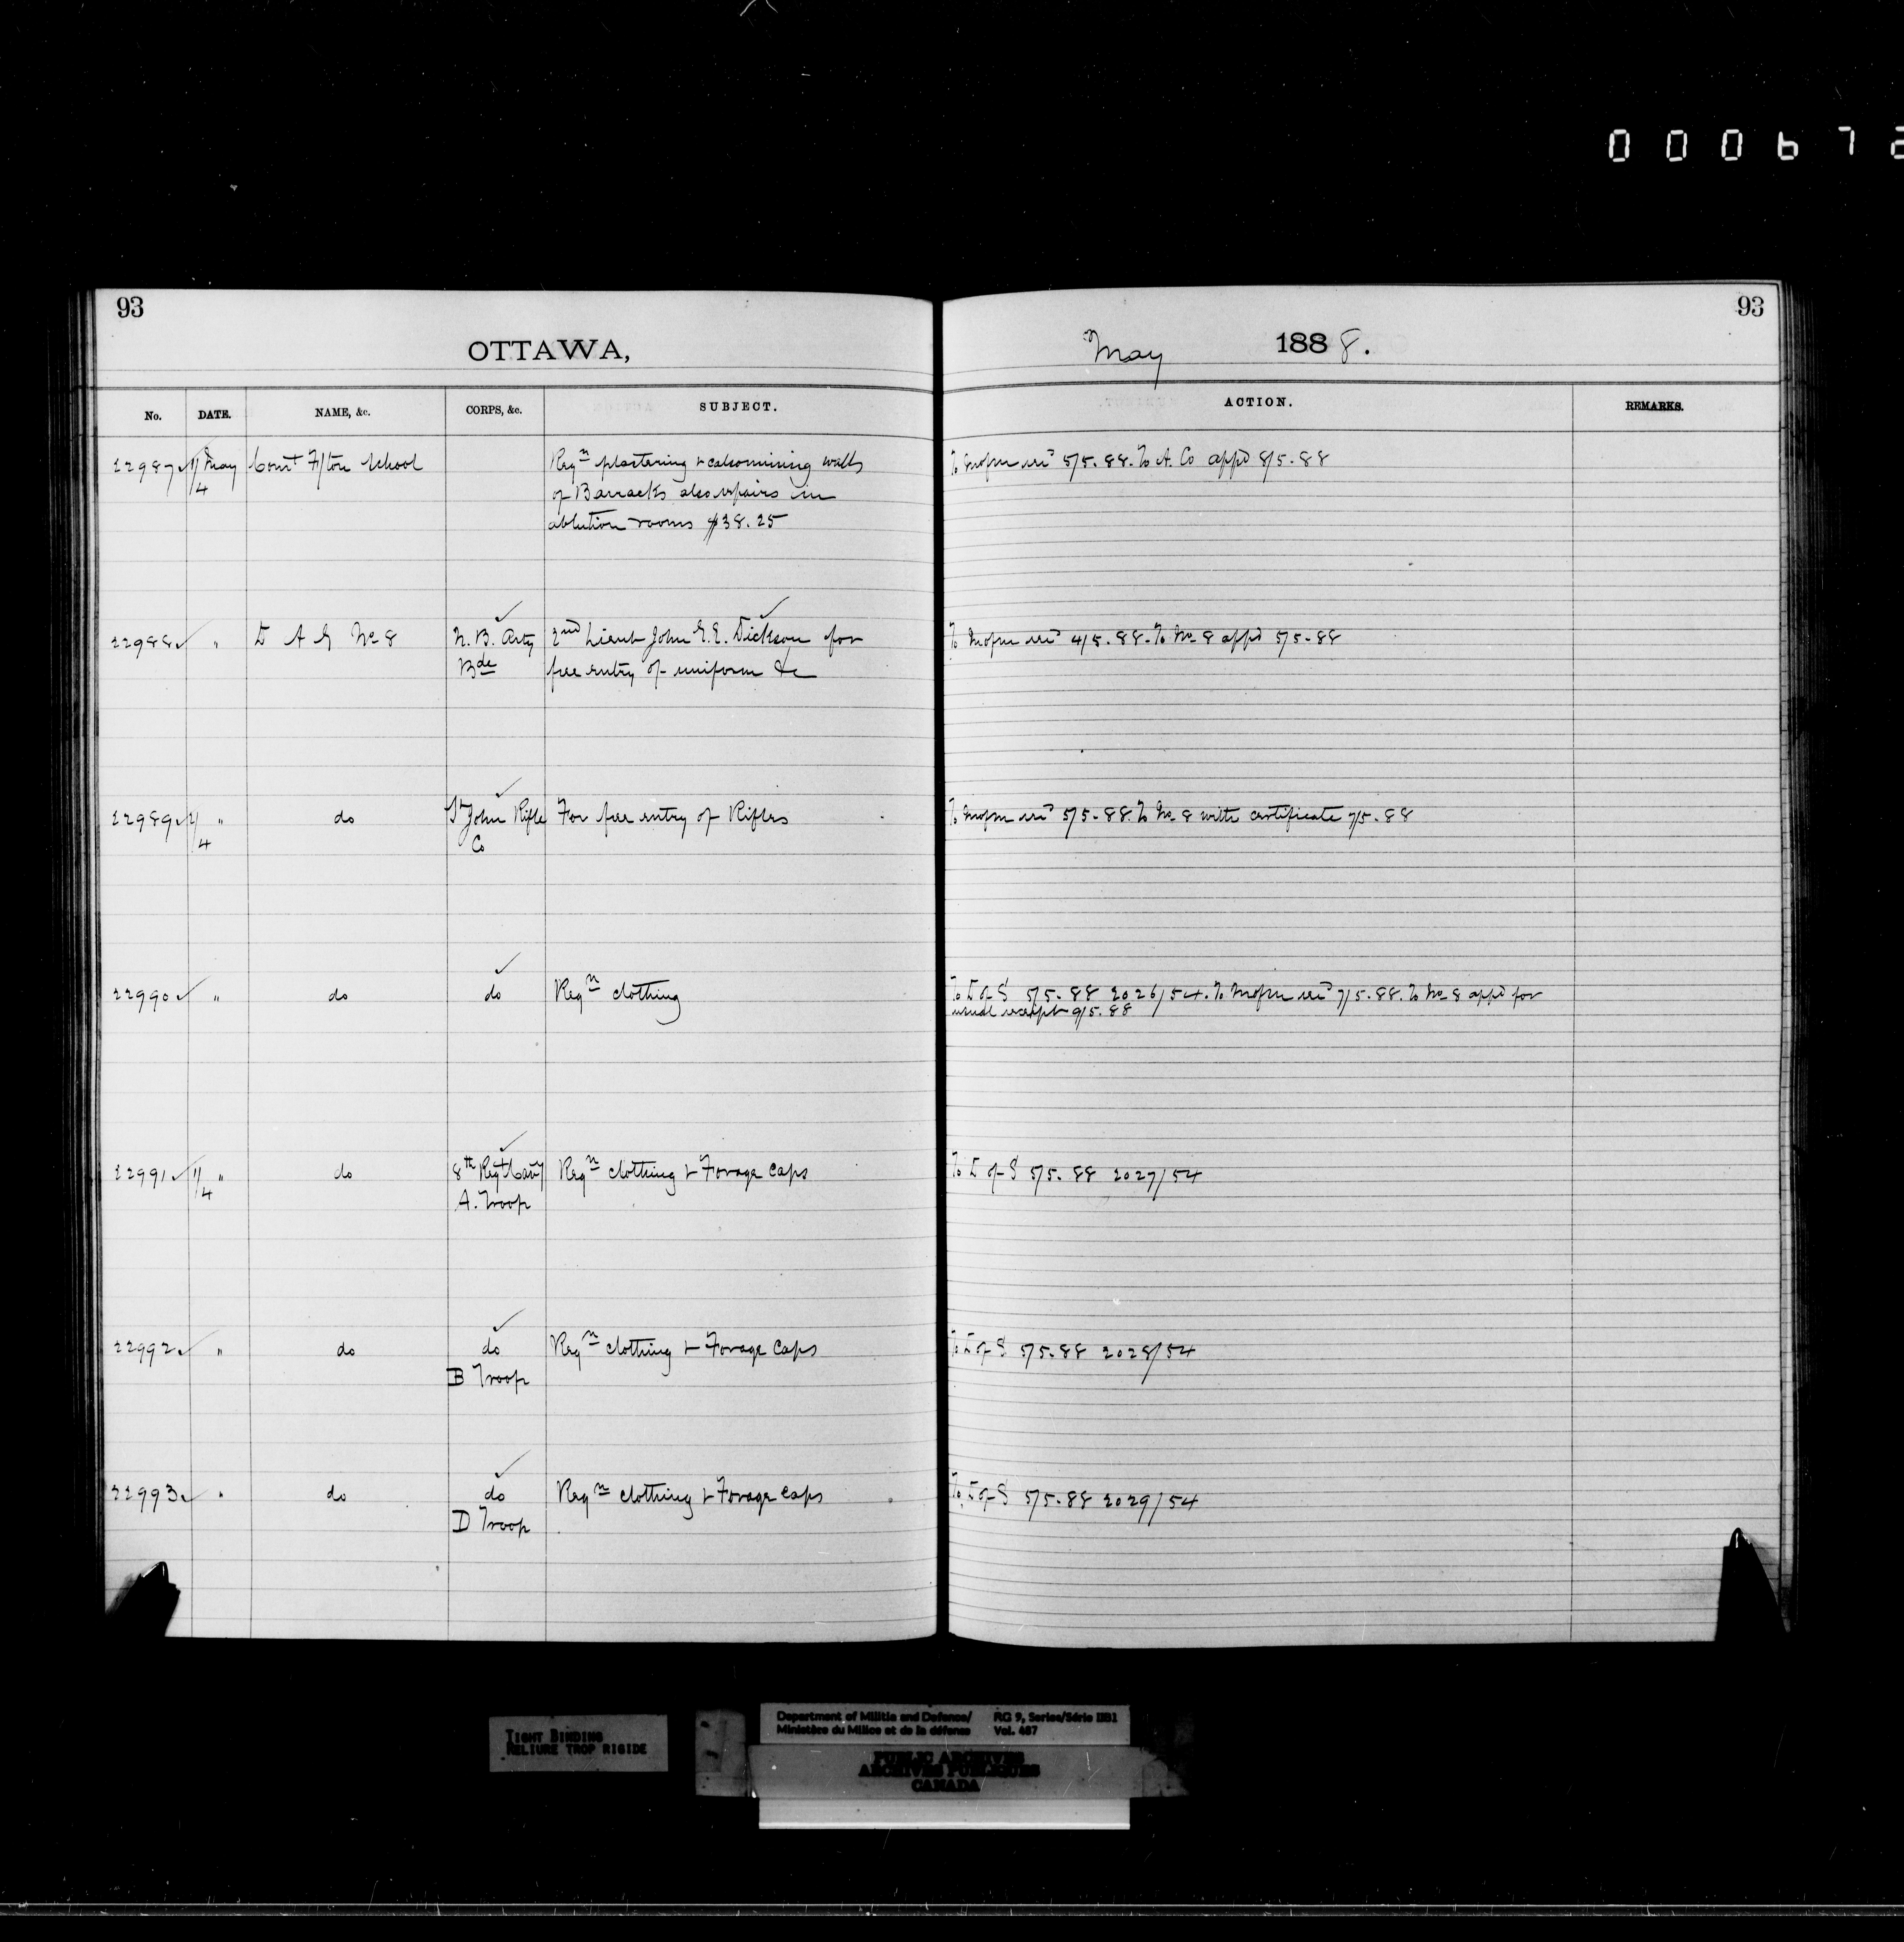 000672
93
93
OTTAWA,
May 1888.
No. DATE. NAME, &c. CORPS, &c. SUBJECT. ACTION. REMARKS.
22987 1/4 May Com't F'ton School Reqn plastering & calsomining walls To 5/5.88. To A. Co app'd 8/5.88
of Barracks also repairs in
ablution rooms $38.25
22988 " D A G No 8 N.B. Arty 2nd Lieut John E.E. Dickson for To 4/5.88. To No 8 app'd 5/5.88
Bde free entry of uniform &c
22989 2/4 " do St John Rifle For free entry of Rifles To 5/5.88. To No 8 with certificate 7/5.88
Co
22990 " do do Reqn clothing To D of S 5/5.88 2026/54. To 7/5.88. To No 8 app'd for
usual receipt 9/5.88
22991 1/4 " do 8th Regt Cavy Reqn clothing & Forage Caps To D of S 5/5.88 2027/54
A. Troop
22992 " do do Reqn clothing & Forage Caps To D of S 5/5.88 2028/54
B Troop
22993 " do do Reqn clothing & Forage Caps To D of S 5/5.88 2029/54
D Troop
TIGHT BINDING
RELIURE TROP RIGIDE
Department of Militia and Defence/ RG 9, Series/Série IIB1
Ministère du Milice et de la défense Vol. 487
PUBLIC ARCHIVES
ARCHIVES PUBLIQUES
CANADA